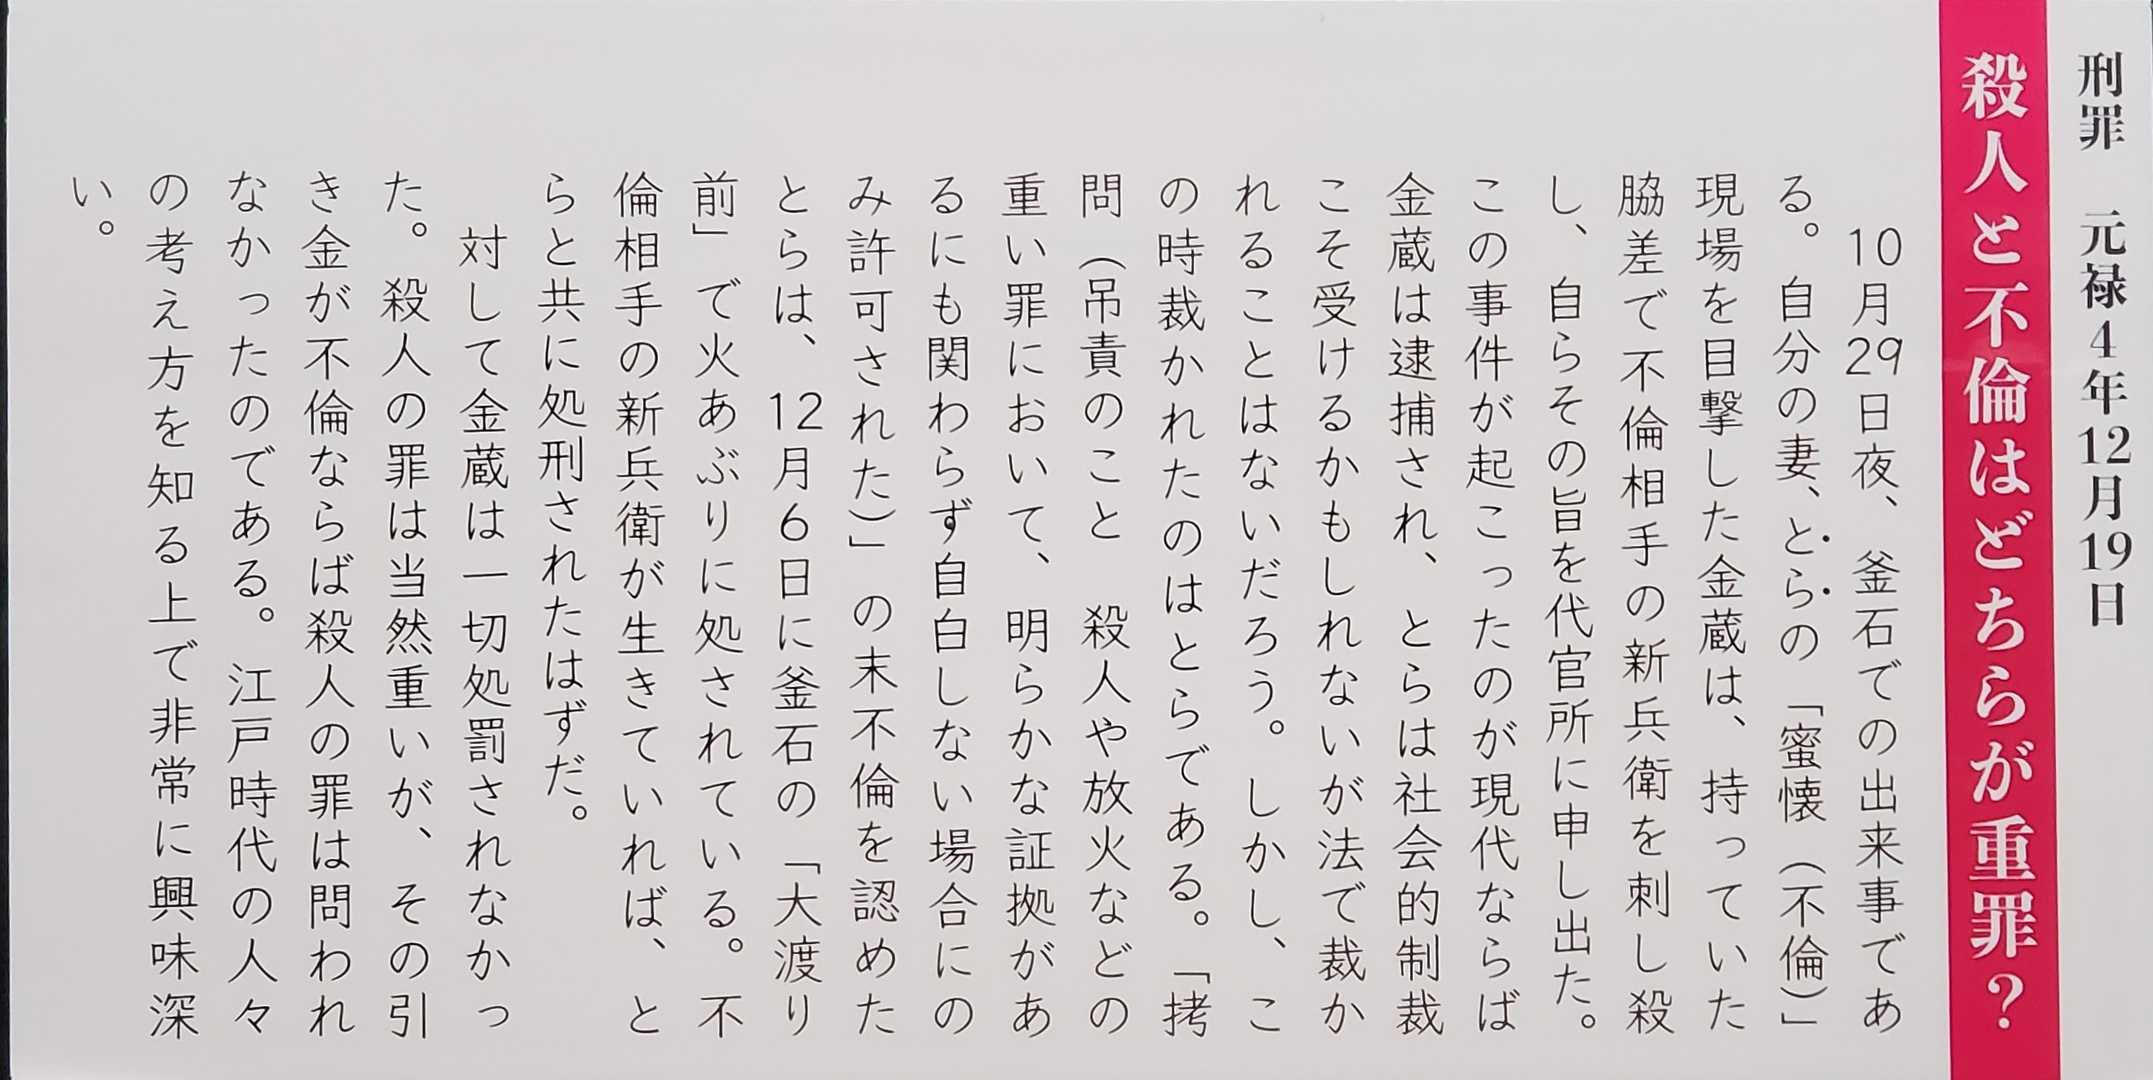 刑罪　元禄4年12月19日
殺人と不倫はどちらが重罪？
　10月29日夜、釜石での出来事であ
る。自分の妻、とらの「蜜懐（不倫）」
現場を目撃した金蔵は、持っていた
脇差で不倫相手の新兵衛を刺し殺
し、自らその旨を代官所に申し出た。
この事件が起こったのが現代ならば
金蔵は逮捕され、とらは社会的制裁
こそ受けるかもしれないが法で裁か
れることはないだろう。しかし、こ
の時裁かれたのはとらである。「拷
問（吊責のこと　殺人や放火などの
重い罪において、明らかな証拠があ
るにも関わらず自白しない場合にの
み許可された）」の末不倫を認めた
とらは、12月6日に釜石の「大渡り
前」で火あぶりに処されている。不
倫相手の新兵衛が生きていれば、と
らと共に処刑されたはずだ。
　対して金蔵は一切処罰されなかっ
た。殺人の罪は当然重いが、その引
き金が不倫ならば殺人の罪は問われ
なかったのである。江戸時代の人々
の考え方を知る上で非常に興味深
い。